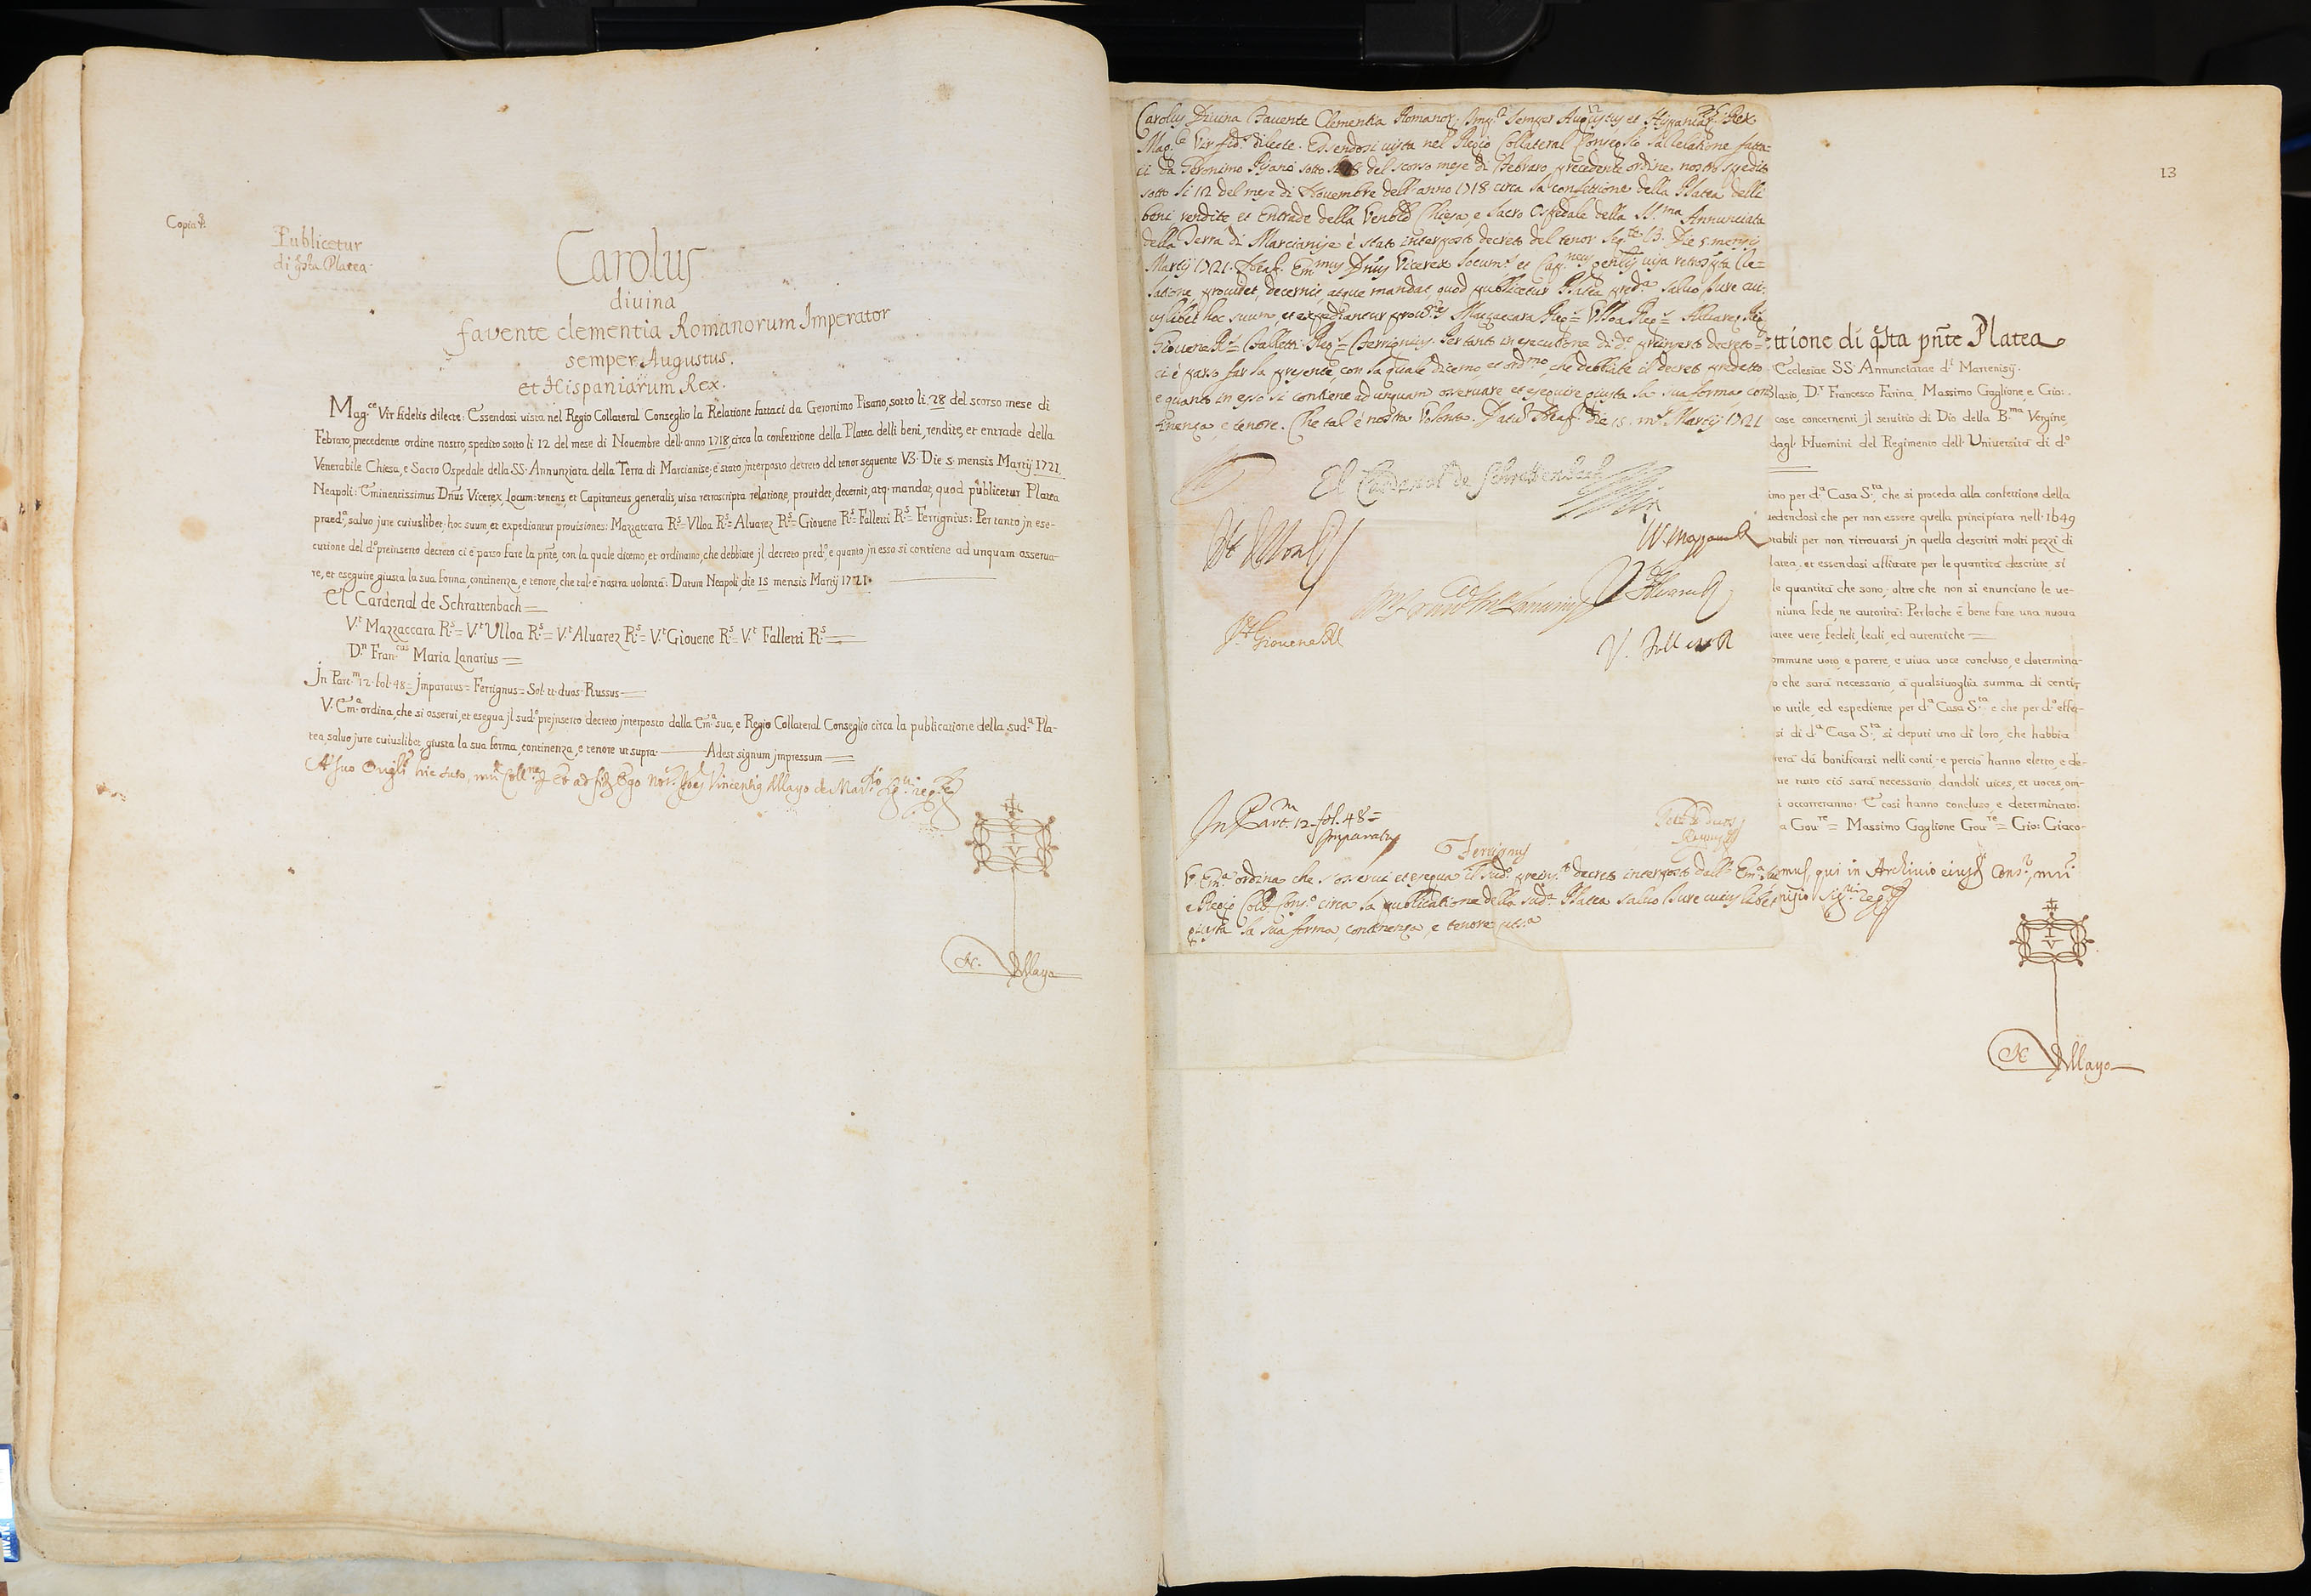 Copia
Publicetur
di q̃sta Platea
Carolus
diuina
favente clementia Romanorum Imperator
semper Augustus.
et Hispaniarum Rex.
Mag.ce Vir fidelis dilecte: Essendosi uista nel Regio Collateral Conseglio la Relatione fattaci da Geronimo Pisano, sotto li 28 del scorso mese di
Febraro, precedente ordine nostro, spedito sotto li 12 del mese di Nouembre dell'anno 1718, circa la confettione della Platea delli beni, rendite, et entrade della
Venerabile Chiesa, e Sacro Ospedale della SS. Annunziata della Terra di Marcianise, è stato jnterposto decreto del tenor seguente V3. Die 5 mensis Martij 1721
Neapoli: Eminentissimus Dñus Vicerex, Locum:tenens, et Capitaneus generalis, uisa retroscripta relatione, prouidet, decernit, atq. mandat, quod publicetur Platea
praed.a, saluo jure cuiuslibet; hoc suum, et expediantur prouisiones: Mazzaccara R.s = Vlloa R.s = Aluarez R.s = Giouene R.s = Falletti R.s = Ferrignius: Per tanto jn ese-
cutione del d.o preinserto decreto ci è parso fare la pñte, con la quale dicemo, et ordinamo, che debbiate jl decreto pred.o, e quanto jn esso si contiene ad unquam osserua-
re, et eseguire giusta la sua forma, continenza, e tenore, che tal è nostra uolontà: Datum Neapoli, die 15 mensis Martij 1721.
El Cardenal de Schrattenbach =
V.t Mazzaccara R.s = V.t Ulloa R.s = V.t Aluarez R.s = V.t Giouene R.s = V.t Falletti R.s =
D.n Fran.cus Maria Lanarius =
Jn Part.m 12. fol. 48 = Jmparatus = Ferrignus = Sol. tt. duos Russus =
V. Em.a ordina, che si osserui, et esegua jl sud.o prejnserto decreto jnterposto dalla Em.a sua, e Regio Collateral Conseglio circa la publicatione della sud.a Pla-
tea, saluo jure cuiuslibet, giusta la sua forma, continenza, e tenore ut supra. Adest signum jmpressum =
N. Mayo
13
Carolus Diuina Fauente Clementia Romanor. Imp.r Semper Augustus et Hispaniar. Rex
Mag.ce Vir fid. dilecte. Essendosi uista nel Regio Collateral Conseglio la Relatione fatta-
ci da Geronimo Pisano sotto li 28 del scorso mese di Febraro precedente ordine nostro spedito
sotto li 12 del mese di Nouembre dell'anno 1718 circa la confettione della Platea delli
beni rendite et Entrade della Chiesa, e Sacro Ospedale della SS.ma Annunciata
della Terra di Marcianise è stato interposto decreto del tenor seg.te V3. Die 5 mensis
Martij 1721. Neap. Em.mus Dñus Vicerex Locum. et Cap.neus gen.lis uisa retros.pta Re-
latione, prouidet, decernit, atque mandat, quod publicetur Platea pred.a saluo Jure cui-
uslibet hoc suum et expediantur Mazzaccara Reg. Vlloa Reg. Aluarez Reg.
Giouene R. Falletti Reg. Ferrignius. Per tanto in esecutione di d.o preinserto decreto
ci è parso far la presente, con la quale dicemo, et ord.mo, che debbiate il decreto predetto
e quanto in esso si contiene ad unquam osseruare et eseguire giusta la sua forma con-
tinenza, e tenore. Che tal è nostra Volontà. Datum Neap. die 15 m. Martij 1721
El Cardenal de Schrattenbach
In Part.m 12. fol. 48 =
Imparatus
Ferrignus
V. Em.a ordina che s'osserui et esegua il sud.o preins.to decreto interposto dall' Em.a sua
e Regio Coll. Cons.o circa la publicatione della sud.a Platea saluo Jure cuiuslibet
giusta la sua forma, continenza, e tenore ut s.a
ttione di q̃sta pñte Platea
Ecclesiae SS. Annunciatae
Blasio, D.r Francesco Farina, Massimo Gaglione, e Gio:
cose concernenti jl seruitio di Dio della B.ma Vergine,
dagl' Huomini del Regimento dell' Università di d.o
imo per d.a Casa S.ta, che si proceda alla confettione della
uedendosi che per non essere quella principiata nell' 1649
ntabili per non ritrouarsi jn quella descritti molti pezzi di
latea; et essendosi affittate per le quantità descritte, si
le quantità che sono; oltre che non si enunciano le ue-
niuna fede, ne autorità: Perloche è bene fare una nuoua
latee uere, fedeli, leali, ed autentiche =
ommune uoto, e parere, e uiua uoce concluso, e determina-
o che sarà necessario, à qualsiuoglia summa di centi-
no utile, ed espediente per d.a Casa S.ta; e che per d.o effet-
si di d.a Casa S.ta, si deputi uno di loro, che habbia
terà dà bonificarsi nelli conti; e perciò hanno eletto, e de-
ue tutto ciò sarà necessario, dandoli uices, et uoces, om-
i occorreranno: E così hanno concluso, e determinato.
a Gou.re = Massimo Gaglione Gou.re = Gio: Giaco-
qui in Archiuio
N. Mayo